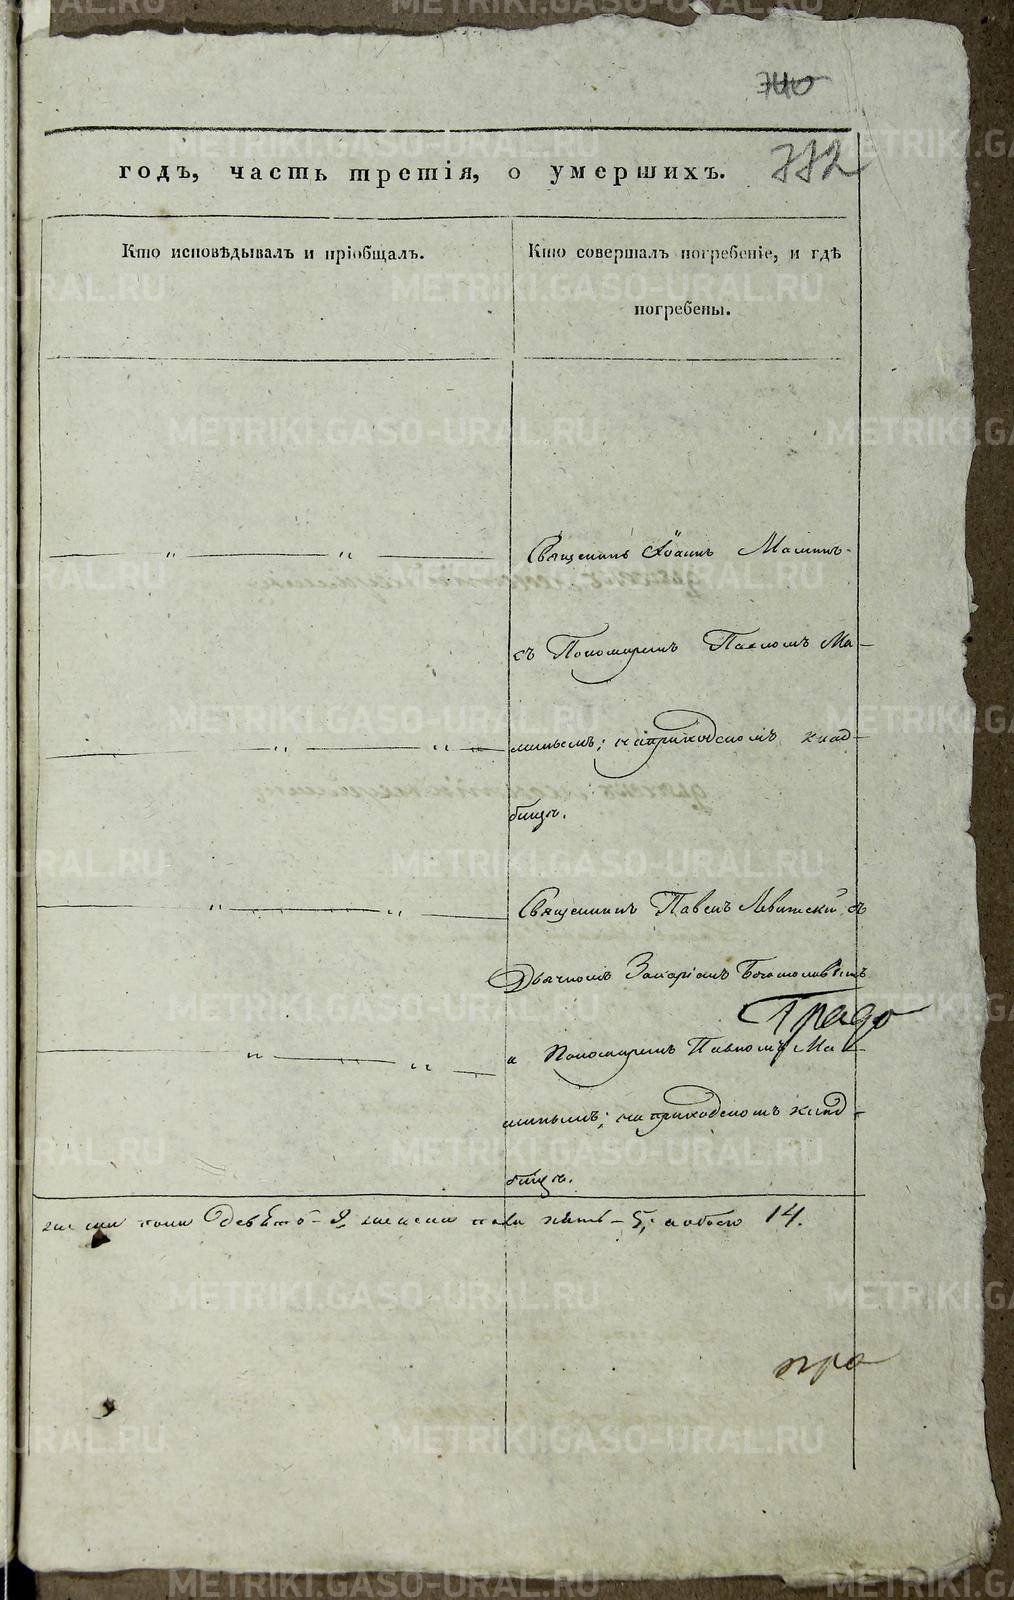 740
772
годъ, часть третія, о умершихъ.
Кто исповѣдывалъ и пріобщалъ.
Кто совершалъ погребеніе, и гдѣ
погребены.
Священникъ Іоаннъ Малинъ
съ Пономаремъ Павломъ Ма-
линымъ; наприходскомъ клад-
бищѣ.
Священникъ Павелъ Левитскій съ
Дьячкомъ Захаріемъ
Градо
и Пономаремъ Павломъ Ма-
линымъ; наприходскомъ клад-
бищѣ.
пола Девять - 9, пола пять - 5; а обоего 14.
METRIKI.GASO-URAL.RU